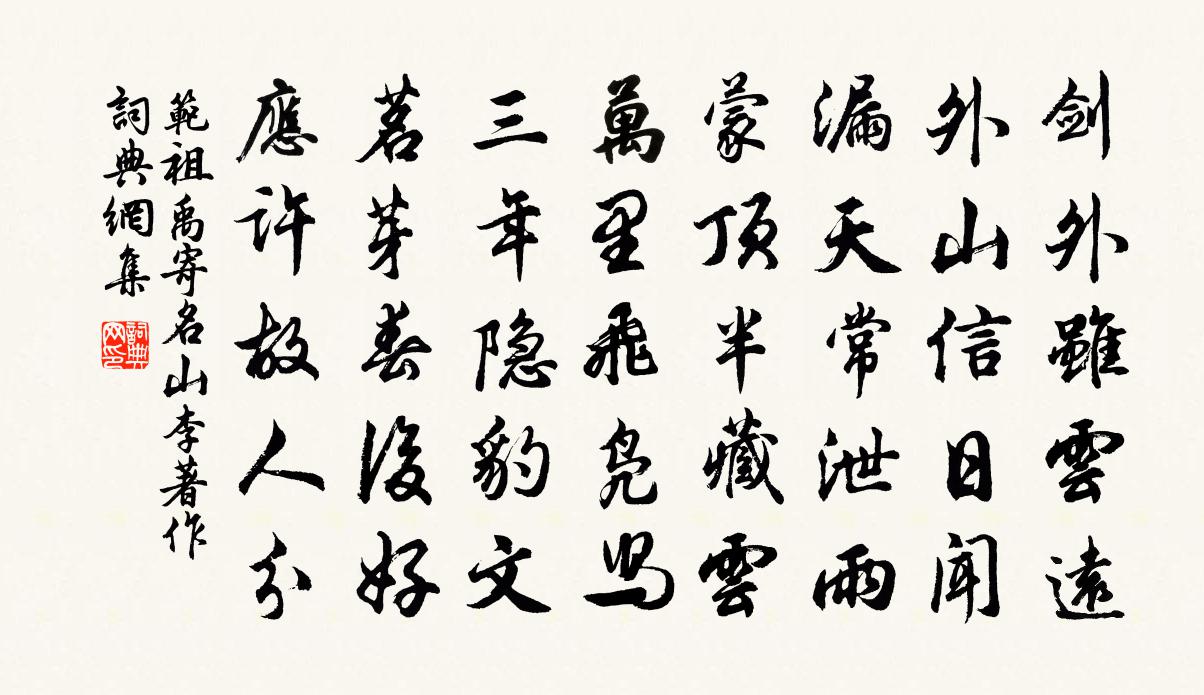 剑外雖雲遠
外山信日闻
漏天常泄雨
蒙頂半藏雲
萬里飛鳧舄
三年隐豹文
茗芽春後好
應許故人分
範祖禹寄名山李著作
詞典網集
詞典网印